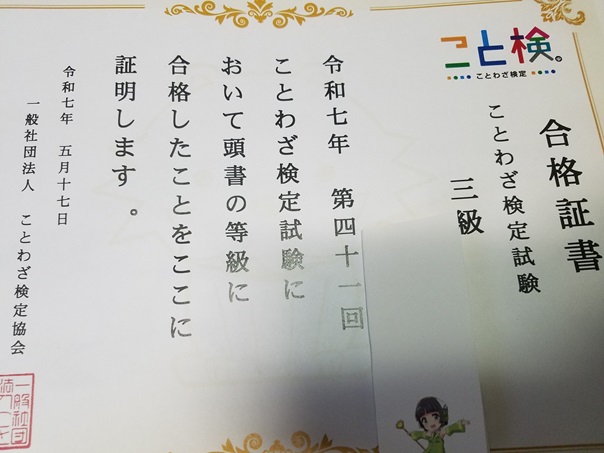 こと検。
ことわざ検定
合格証書
ことわざ検定試験
三級
令和七年 第四十一回
ことわざ検定試験に
おいて頭書の等級に
合格したことをここに
証明します。
令和七年 五月十七日
一般社団法人 ことわざ検定協会
一般社団